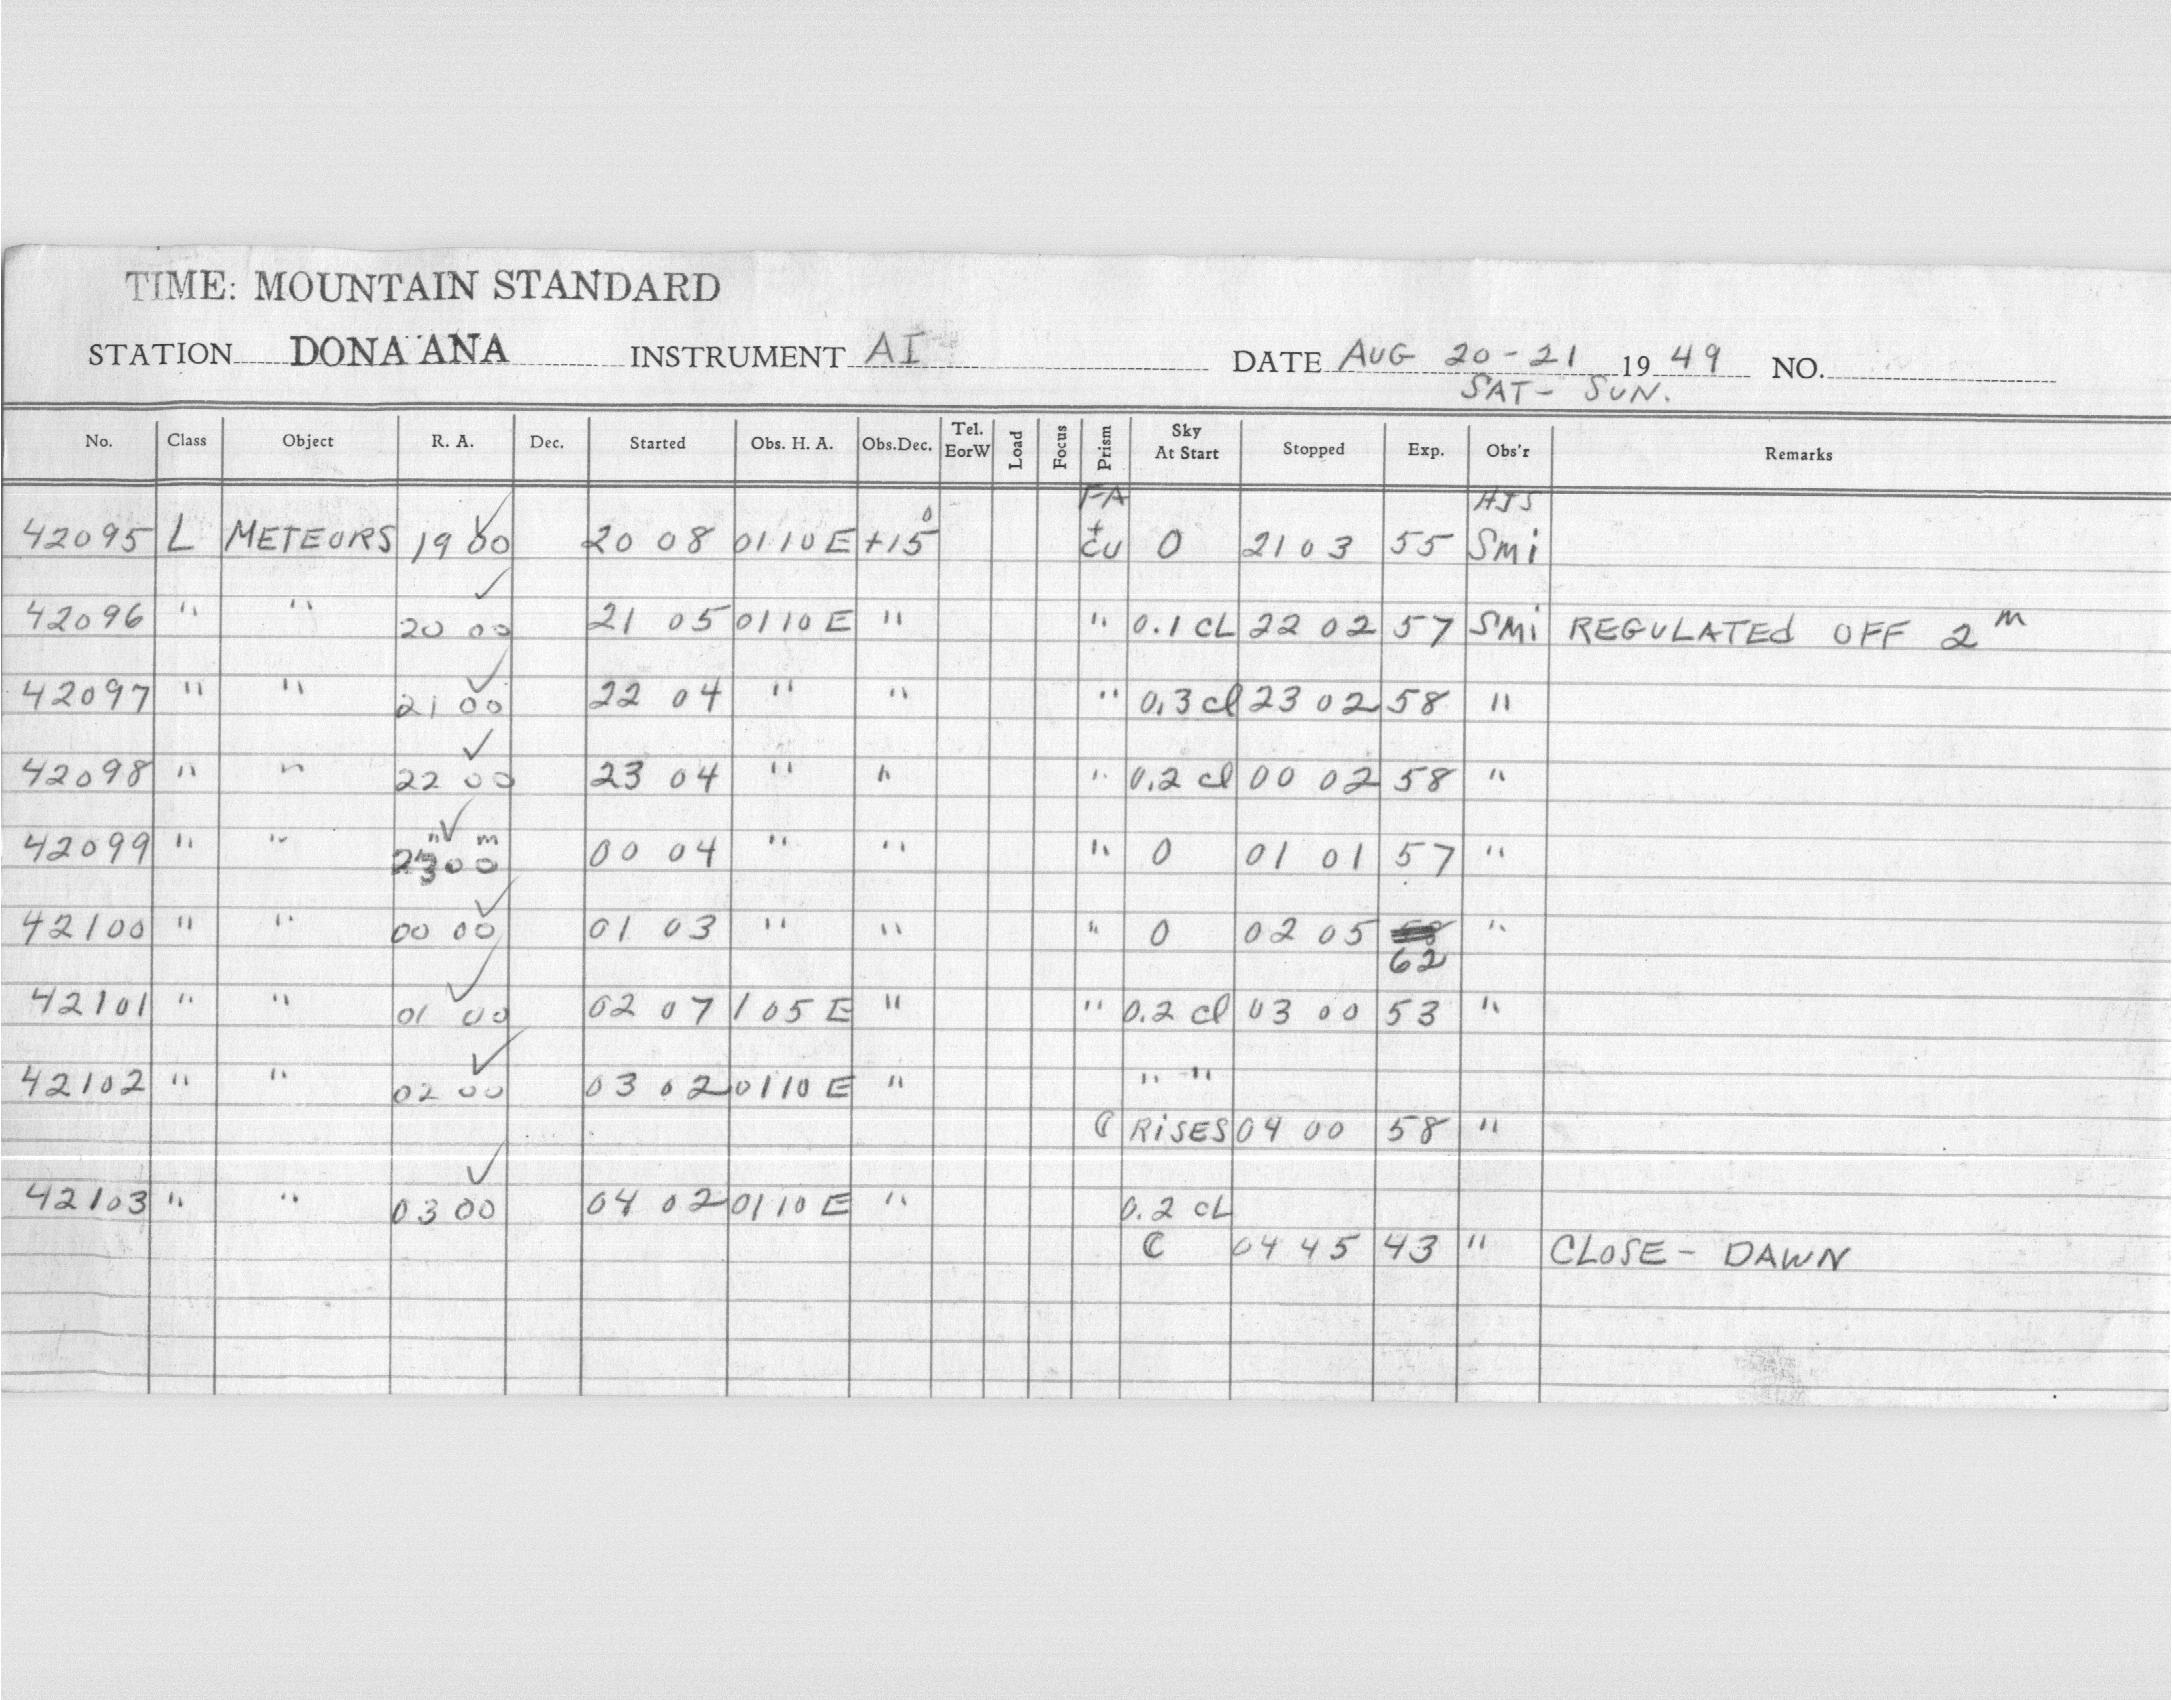 TIME: MOUNTAIN STANDARD
STATION DONA ANA INSTRUMENT AI DATE AUG 20-21 1949 NO.
SAT- SUN.
No. Class Object R. A. Dec. Started Obs. H. A. Obs.Dec. Tel. EorW Load Focus Prism Sky At Start Stopped Exp. Obs'r Remarks
FA HJS
42095 L METEORS 19 00 ✓ 20 08 0110 E +15° + cu 0 2103 55 Smi
42096 " " 20 00 ✓ 21 05 0110 E " " 0.1 CL 22 02 57 SMi REGULATEd OFF 2 m
42097 " " 21 00 ✓ 22 04 " " " 0.3 cl 23 02 58 "
42098 " " 22 00 ✓ 23 04 " " " 0.2 cl 00 02 58 "
42099 " " 23 00 ✓ 00 04 " " " 0 01 01 57 "
42100 " " 00 00 ✓ 01 03 " " " 0 02 05 62 "
42101 " " 01 00 ✓ 02 07 1 05 E " " 0.2 cl 03 00 53 "
42102 " " 02 00 ✓ 03 02 0110 E " " "
☾ RiSES 04 00 58 "
42103 " " 03 00 ✓ 04 02 0110 E " 0.2 cL
☾ 04 45 43 " CLOSE - DAWN